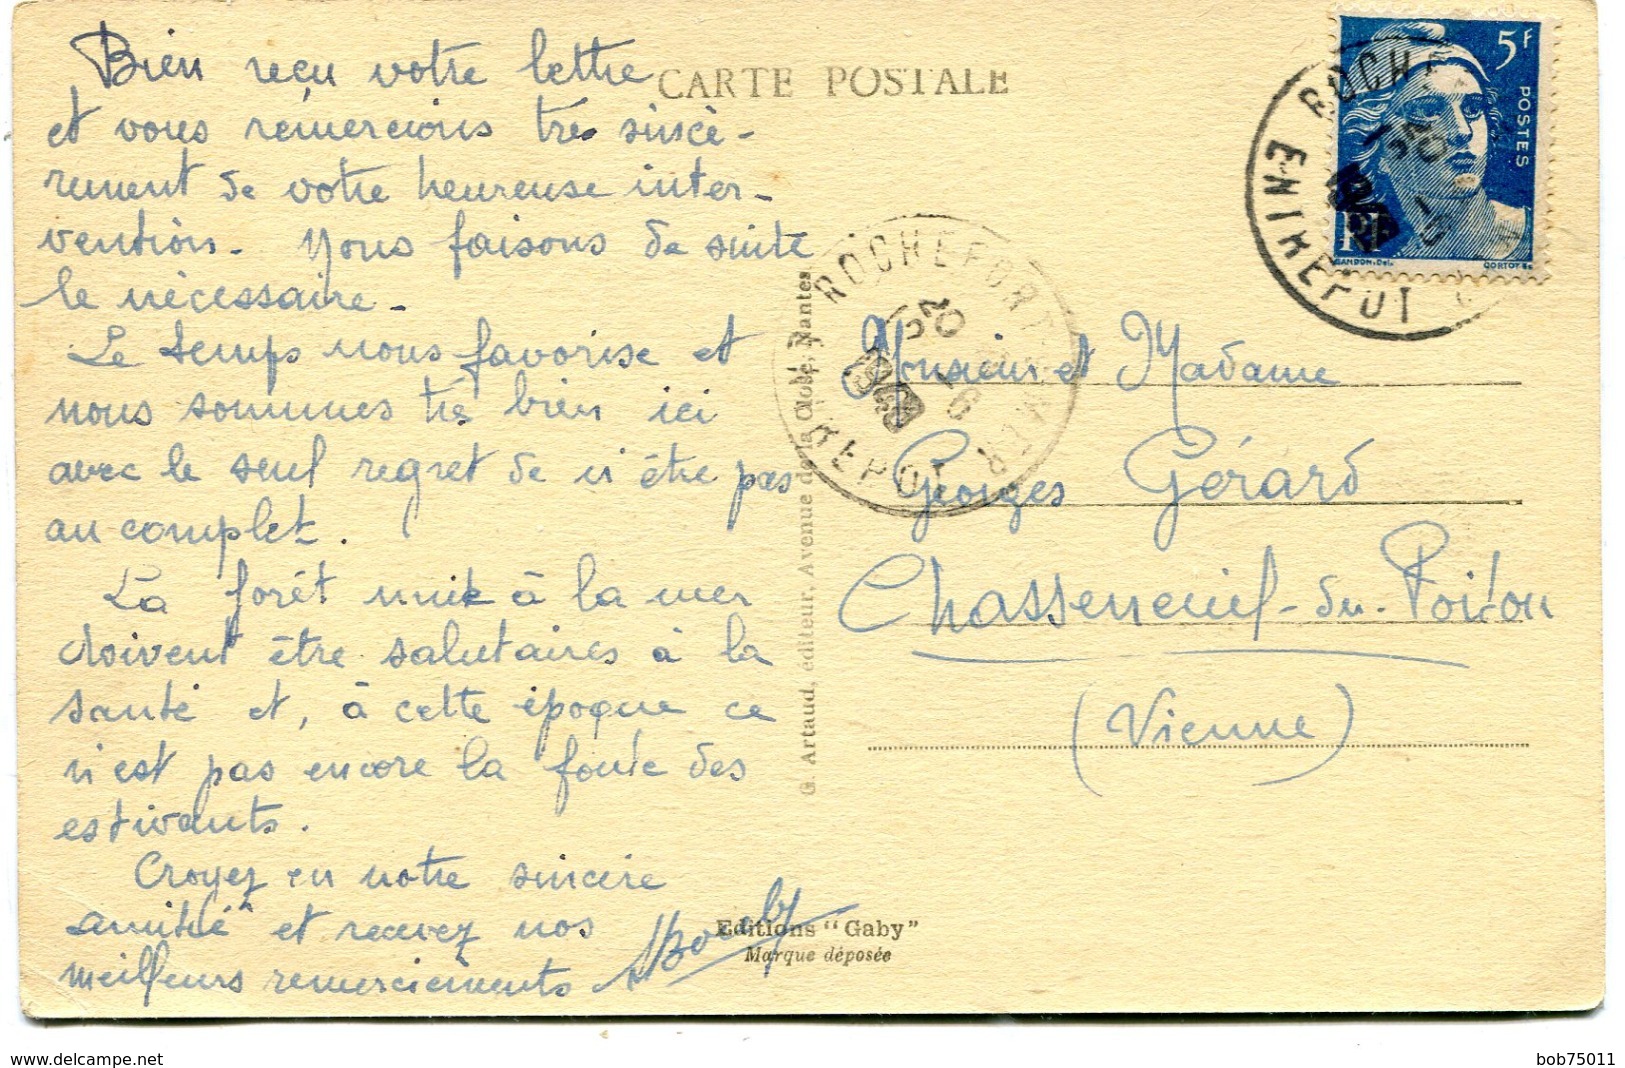 Bien reçu votre lettre
et vous remercions très sincè-
rement de votre heureuse inter-
vention. Nous faisons de suite
le nécessaire.
Le temps nous favorise et
nous sommes très bien ici
avec le seul regret de n'être pas
au complet.
La forêt unie à la mer
doivent être salutaires à la
santé et, à cette époque ce
n'est pas encore la foule des
estivants.
Croyez en notre sincère
amitié et recevez nos
meilleurs remerciements
CARTE POSTALE
G. Artaud, éditeur, Avenue de la Close, Nantes
Editions "Gaby"
Marque déposée
5F
POSTES
RF
GANDON.Del.
CORTOT.Sc.
ROCHEFORT
20
5
ROCHE
Monsieur et Madame
Georges Gérard
Chasseneuil-du-Poitou
(Vienne)
www.delcampe.net
bob75011